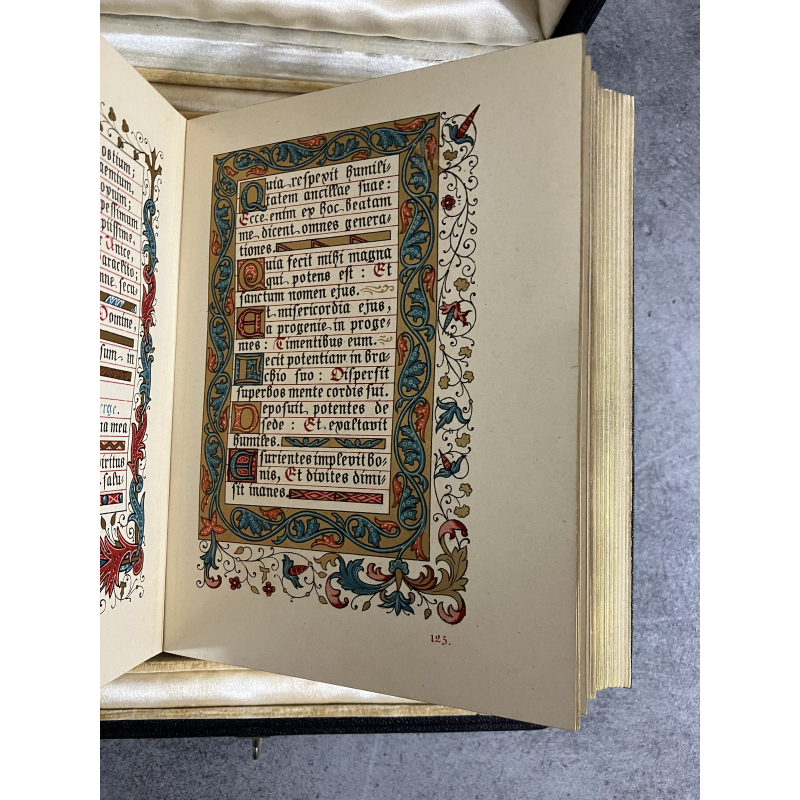 ostium;
aemtum.
ovum;
pessimum
piissime.
Unice,
araclito;
nne secu-
Domine,
sum in
erge.
na mea
piritus
salu-
Quia respexit humili-
tatem ancillae suae:
Ecce enim ex hoc beatam
me dicent omnes genera-
tiones.
Quia fecit mihi magna
qui potens est: Et
sanctum nomen ejus.
Et misericordia ejus,
a progenie in proge-
nies: Timentibus eum.
Fecit potentiam in bra-
chio suo: Dispersit
superbos mente cordis sui.
Deposuit potentes de
sede: Et exaltavit
humiles.
Esurientes implevit bo-
nis, Et divites dimi-
sit inanes.
125.